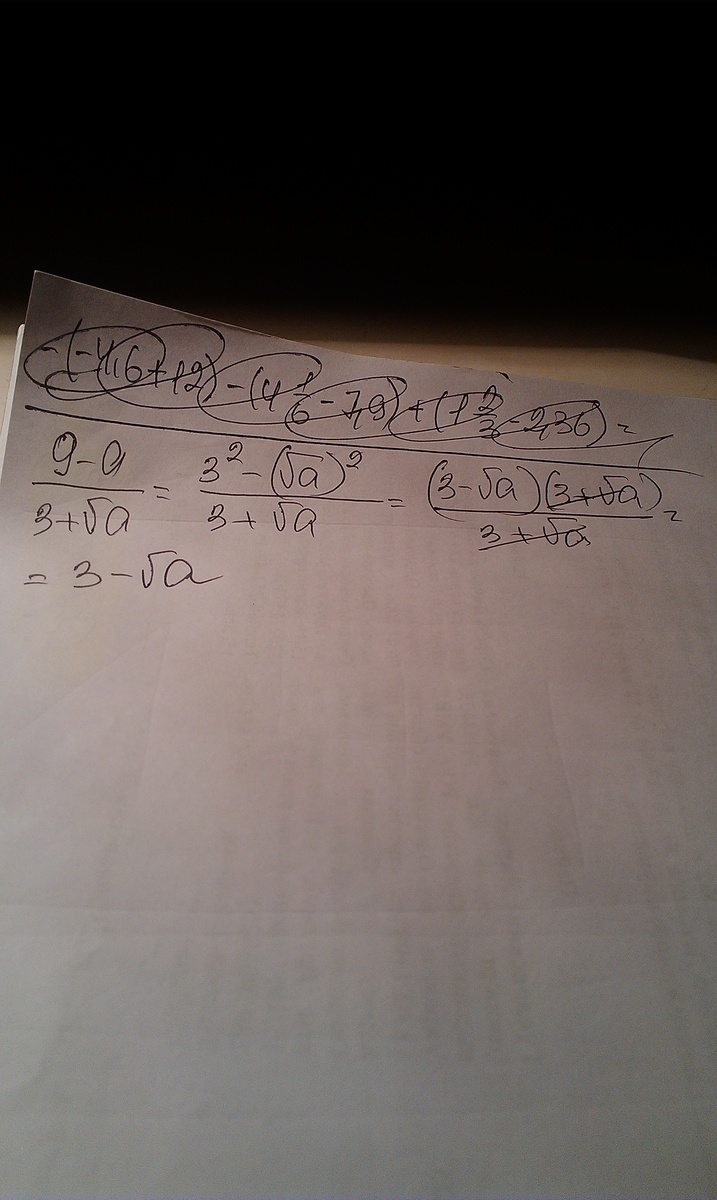 -(-4,16+12)-(4 1/6-7,9)+(1 2/3-2,36)=
(9-a)/(3+√a) = (3²-(√a)²)/(3+√a) = ((3-√a)(3+√a))/(3+√a) =
= 3-√a